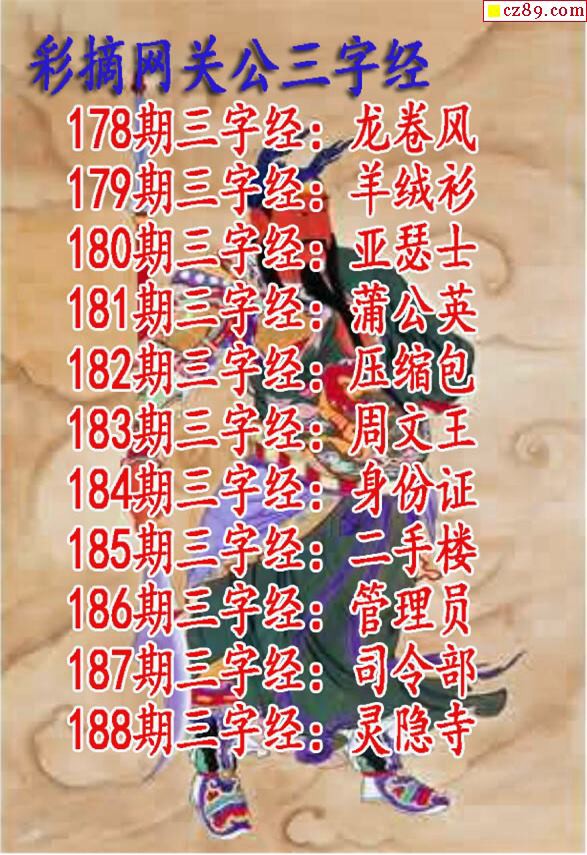 cz89.com
彩摘网关公三字经
178期三字经：龙卷风
179期三字经：羊绒衫
180期三字经：亚瑟士
181期三字经：蒲公英
182期三字经：压缩包
183期三字经：周文王
184期三字经：身份证
185期三字经：二手楼
186期三字经：管理员
187期三字经：司令部
188期三字经：灵隐寺